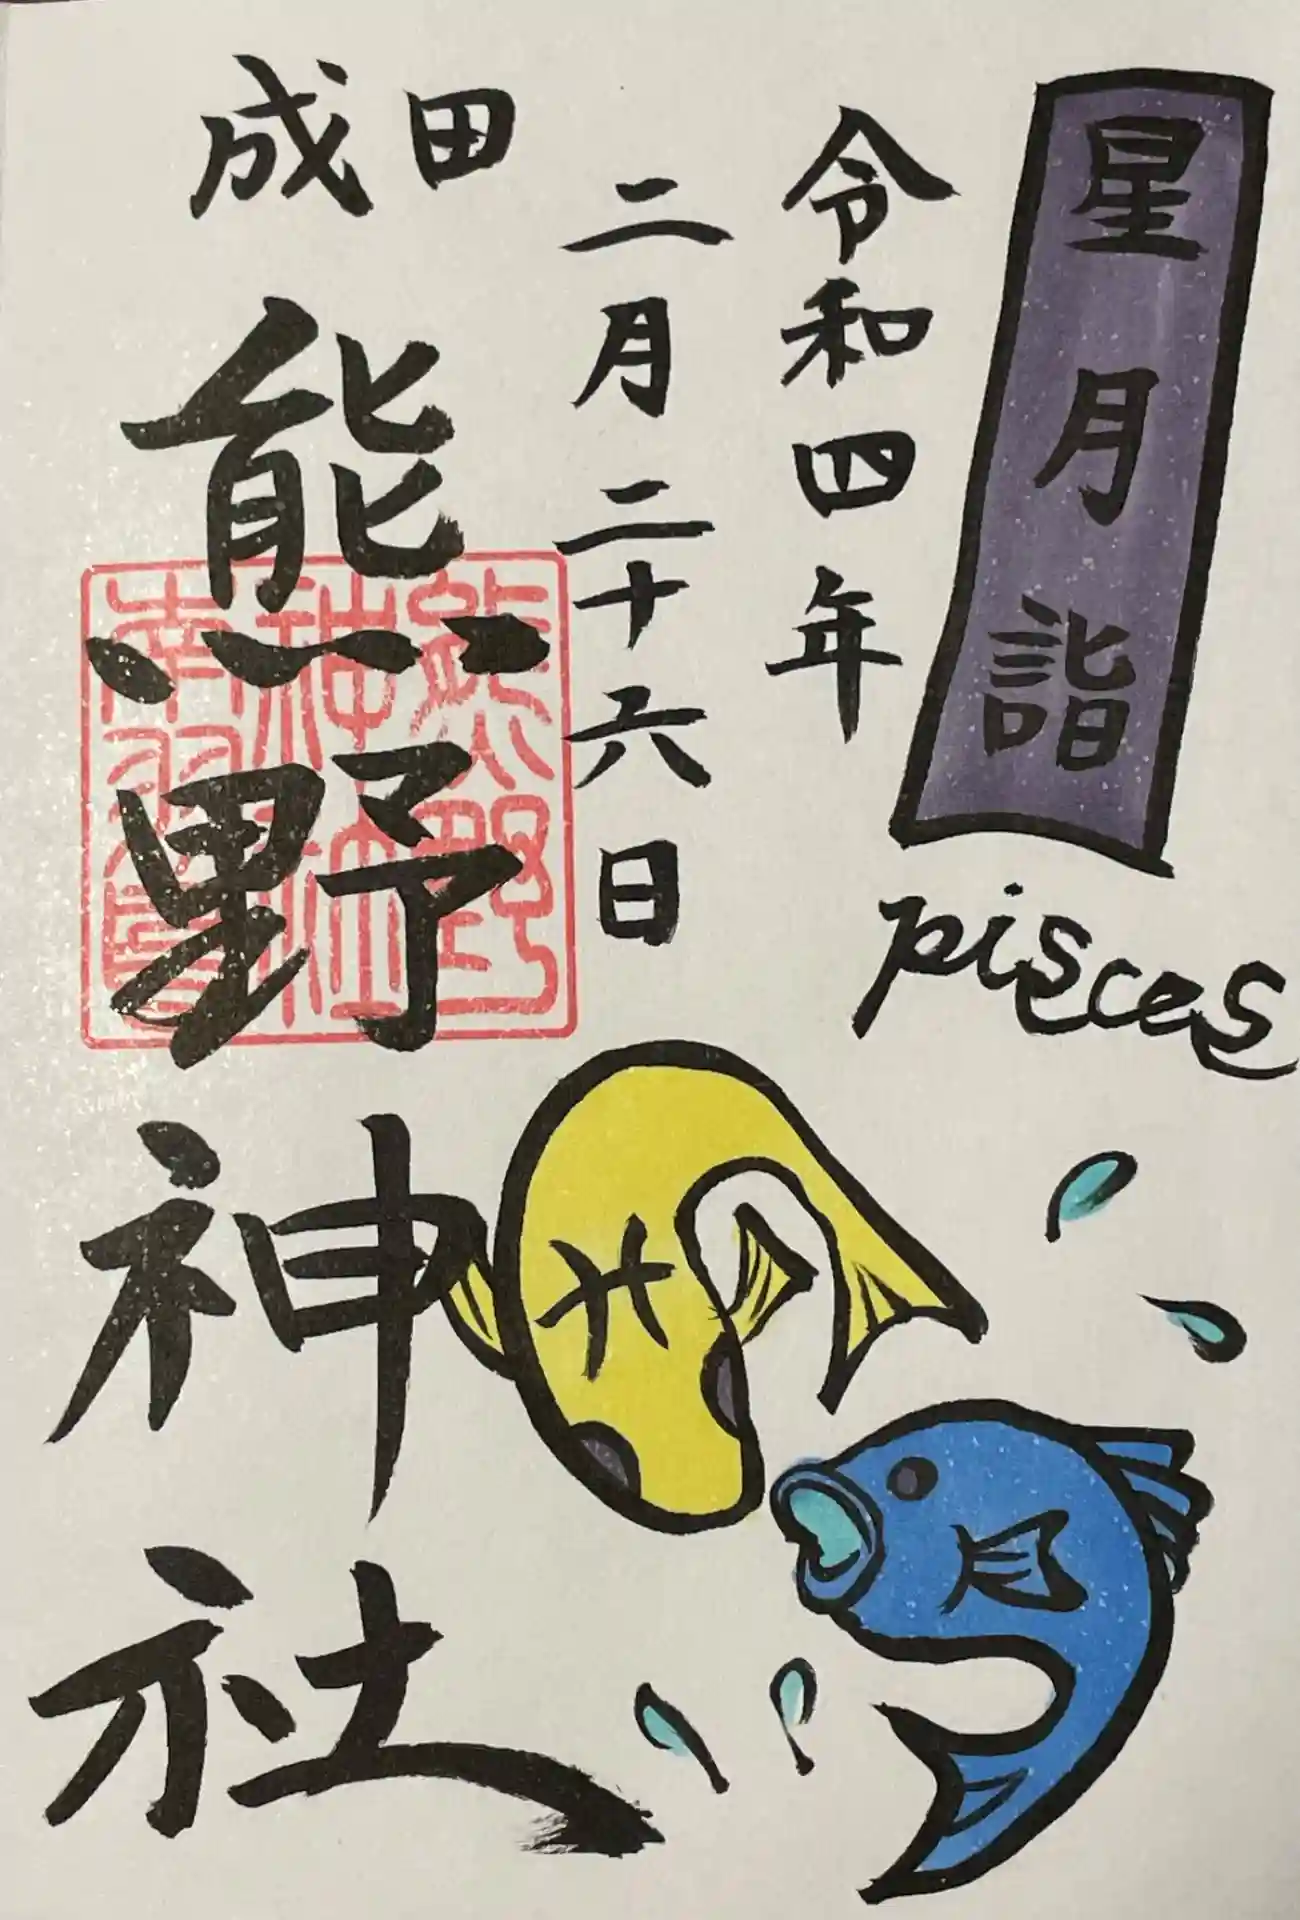 星月詣
pisces
令和四年
二月二十六日
成田
熊野神社
熊野
神社
南羽鳥